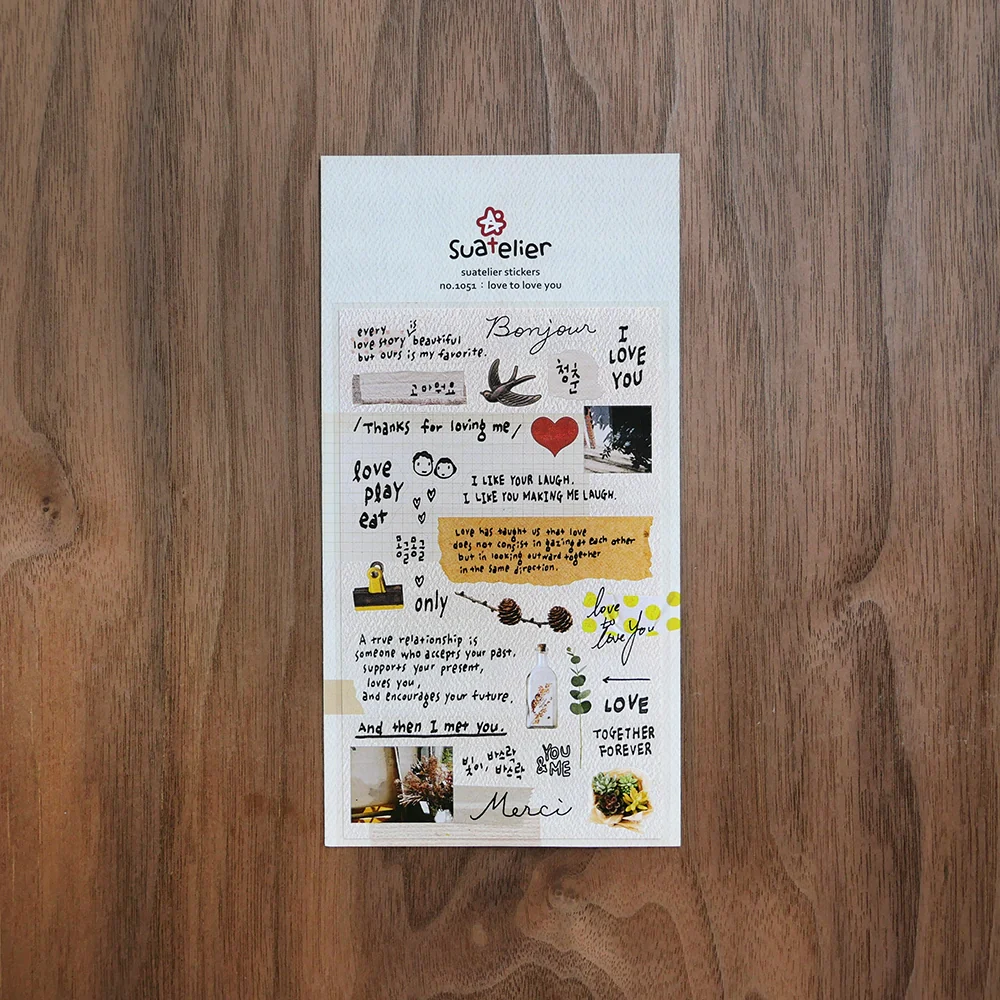 Suatelier
suatelier stickers
no.1051 : love to love you
every is
love story beautiful
but ours is my favorite.
Bonjour
I
LOVE
YOU
고마워요
청춘
/Thanks for loving me/
love
play
eat
I LIKE YOUR LAUGH.
I LIKE YOU MAKING ME LAUGH.
Love has taught us that love
does not consist in gazing at each other
but in looking outward together
in the same direction.
몽글몽글
only
love
to
love you
A true relationship is
someone who accepts your past,
supports your present,
loves you,
and encourages your future.
LOVE
TOGETHER
FOREVER
And then I met you.
빛이, 바스락
바스락
YOU
& ME
Merci